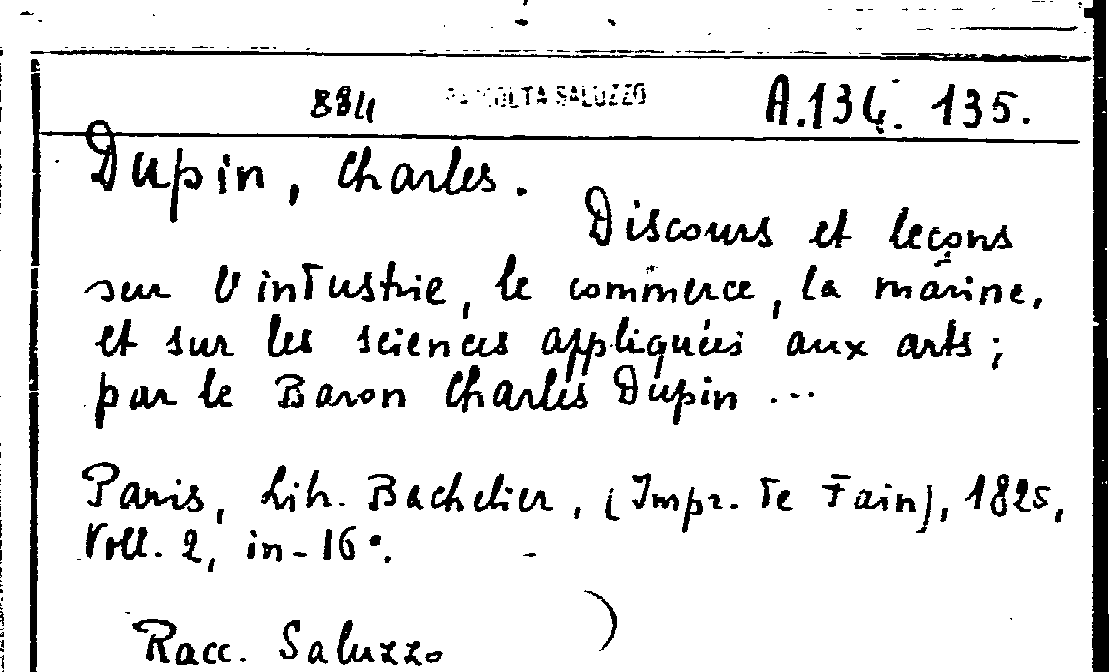 884 RACCOLTA SALUZZO A.134. 135.
Dupin, Charles.
Discours et leçons
sur l'industrie, le commerce, la marine,
et sur les sciences appliquées aux arts;
par le Baron Charles Dupin ...
Paris, Lib. Bachelier, (Impr. de Fain), 1825,
Voll. 2, in-16°.
Racc. Saluzzo